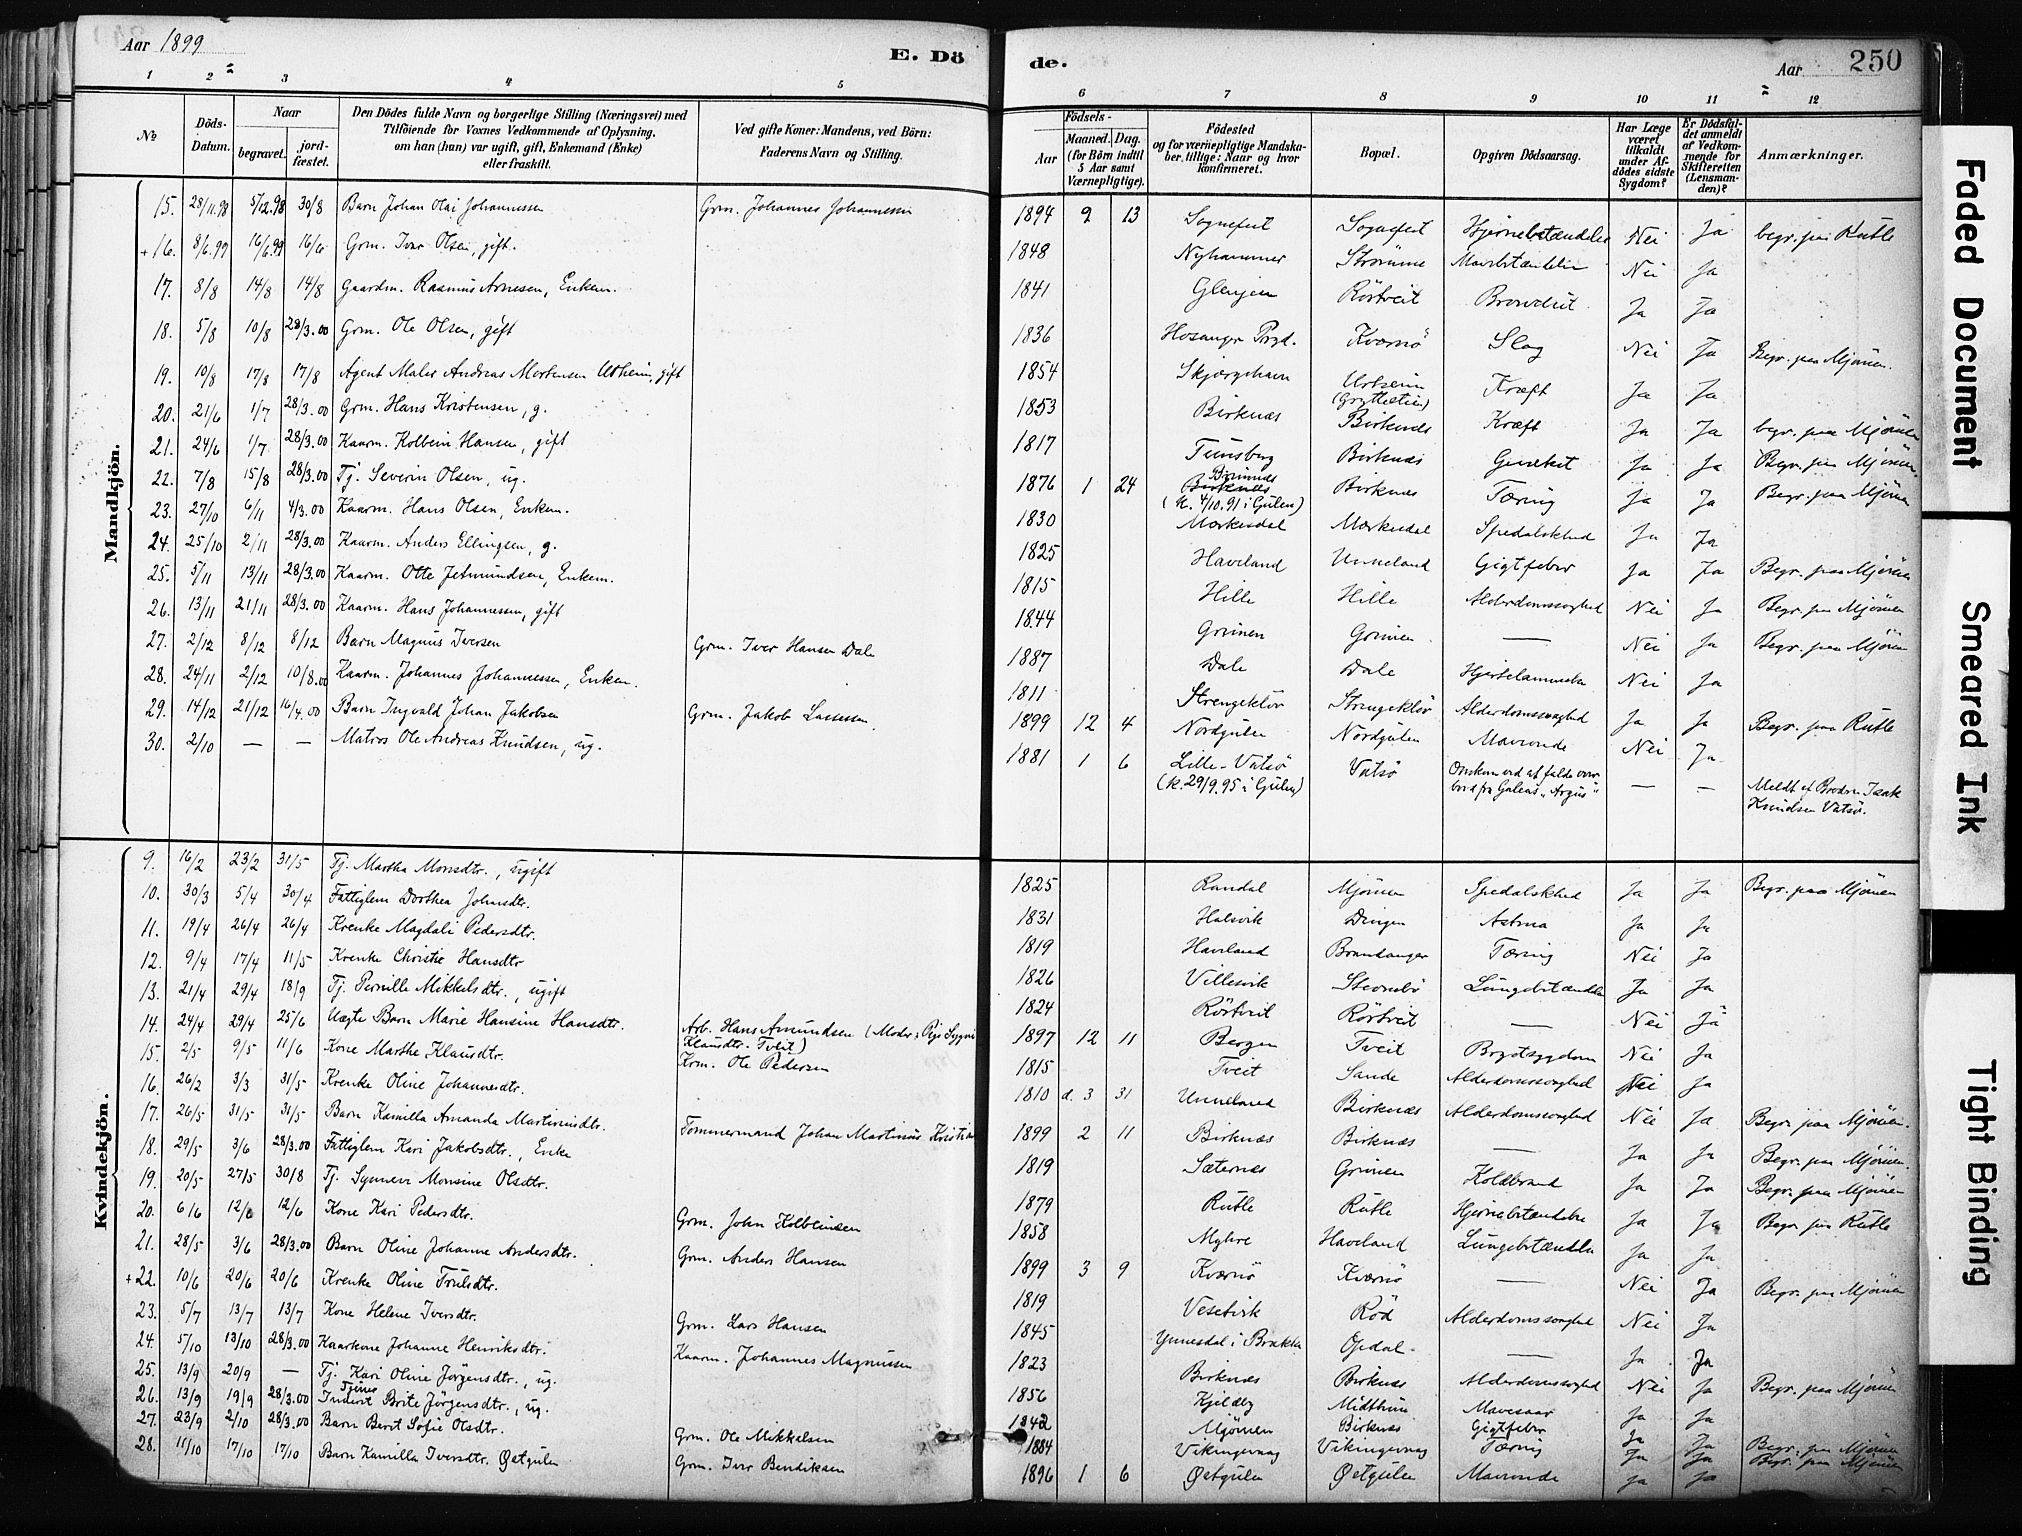 Aar 1899
E. Dö
de.
Aar
250
1 2 3 4 5 6 7 8 9 10 11 12
No
Döds-Datum.
Naar
begravet. jord-fæstet.
Den Dödes fulde Navn og borgerlige Stilling (Næringsvei) med
Tilföiende for Voxnes Vedkommende af Oplysning,
om han (hun) var ugift, gift, Enkemand (Enke)
eller fraskilt.
Ved gifte Koner: Mandens, ved Börn:
Faderens Navn og Stilling.
Födsels-
Aar Maaned. Dag.
(for Börn indtil
5 Aar samt
Værnepligtige).
Födested
og for værnepligtige Mandska-
ber, tillige: Naar og hvor
konfirmeret.
Bopæl.
Opgiven Dödsaarsag.
Har Læge
været
tilkaldt
under Af-
dödes sidste
Sygdom?
Er Dödsfal-
det anmeldt
af Vedkom-
mende for
Skifteretten
(Lensman-
den)?
Anmærkninger.
Mandkjön.
15. 28/11.98 5/12.98 30/8 Barn Johan Olai Johannessen Grm. Johannes Johannessen 1894 9 13 Sognefest Sognefest Hjernebetændelse Nei Ja begr. paa Rutle
+16. 8/6.99 16/6.99 16/6 Grm. Iver Olsen, gift. 1848 Nyhammer Strömme Mavebetændelse Nei Ja
17. 8/8 14/8 14/8 Gaardm. Rasmus Arnesen, Enkem. 1841 Glenjen Rörtveit Ja Ja
18. 5/8 10/8 28/3.00 Grm. Ole Olsen, gift 1836 Hosanger Prgd. Kværnö Slag Nei Ja Begr. paa Mjömen.
19. 10/8 17/8 17/8 Agent Maler Andreas Mortensen Utheim, gift 1854 Skjærjehavn Kræft Ja Ja
20. 21/6 1/7 28/3.00 Grm. Hans Kristensen, g. 1853 Birknæs Birknæs Kræft Ja Ja begr. paa Mjömen
21. 24/6 1/7 28/3.00 Kaarm. Kolbein Hansen, gift 1817 Tunsberg Birknæs Ja Ja Begr. paa Mjömen
22. 7/8 15/8 28/3.00 Tj. Severin Olsen, ug. 1876 1 24 Birknæs (k. 4/10.91 i Gulen) Birknæs Tæring Ja Ja Begr. paa Mjömen
23. 27/10 6/11 4/3.00 Kaarm. Hans Olsen, Enkem. 1830 Mærkesdal Mærkesdal Spedalskhed Ja Ja
24. 25/10 2/11 28/3.00 Kaarm. Anders Ellingsen, g. 1825 Haveland Unneland Gigtfeber Ja Ja Begr. paa Mjömen
25. 5/11 13/11 28/3.00 Kaarm. Otte Jetmundsen, Enkem. 1815 Hille Hille Alderdomssvaghed Nei Ja Begr. paa Mjömen
26. 13/11 21/11 28/3.00 Kaarm. Hans Johannessen, gift 1844 Grinen Grinen — Nei Ja Begr. paa Mjömen
27. 2/12 8/12 8/12 Barn Magnus Iversen Grm. Iver Hansen Dale 1887 Dale Dale Hjertelammelse Nei Ja
28. 24/11 2/12 10/8.00 Kaarm. Johannes Johannessen, Enkem. 1811 Strengeklöv Strengeklöv Alderdomssvaghed Ja Ja Begr. paa Rutle
29. 14/12 21/12 16/4.00 Barn Ingvald Johan Jakobsen Grm. Jakob Lassesen. 1899 12 4 Nordgulen Nordgulen Mavonde Nei Ja
30. 2/10 — — Matros Ole Andreas Knudsen, ug. 1881 1 6 Lille-Vatsö (k. 29/9.95 i Gulen) Vatsö Omkom ved at falde over bord fra Galeas „Argus" — — Meldt af Broderen Isak Knudsen Vatsö.
Kvindekjön.
9. 16/2 23/2 31/5 Tj. Martha Monsdtr., ugift 1825 Randal Mjömen Spedalskhed Ja Ja Begr. paa Mjömen
10. 30/3 5/4 30/4 Fattiglem Dorthea Johnsdtr. 1831 Halsvik Dingen Astma Ja Ja
11. 19/4 26/4 26/4 Krenke Magdali Pedersdtr. 1819 Haveland Brandanger Tæring Nei Ja
12. 9/4 17/4 11/5 Krenke Christie Hansdtr 1826 Villesvik Stevnebö Lungebetændelse Ja Ja
13. 21/4 29/4 18/9 Tj. Pernille Mikkelsdtr., ugift 1824 Rörtveit Rörtveit — Nei Ja
14. 24/4 29/4 25/6 Uægte Barn Marie Hansine Hansdtr. Arb. Hans Amundsen (Moder: Pige Sygni Klausdtr. Tveit) 1897 12 11 Bergen Tveit Brystsygdom Nei Ja
15. 2/5 9/5 11/6 Kone Marthe Klausdtr. Krm. Ole Pedersen 1815 Tveit Sande Alderdomssvaghed Nei Ja
16. 26/2 3/3 31/5 Krenke Oline Johannesdtr. 1810 d. 3 31 Unneland Birknæs Alderdomssvaghed Nei Ja Begr. paa Mjömen.
17. 26/5 31/5 31/5 Barn Kamilla Amanda Martinusdtr. Tømmermand Johan Martinus Kristian 1899 2 11 Birknæs Birknæs — Ja Ja Begr. paa Mjömen.
18. 29/5 3/6 28/3.00 Fattiglem Kari Jakobsdtr., Enke 1819 Sæternes Grinen Koldbrand Ja Ja Begr. paa Mjömen
19. 20/5 27/5 30/8 Tj. Synnevi Monsine Olsdtr. 1879 Rutle Rutle Hjernebetændelse Ja Ja Begr. paa Rutle
20. 6/6 12/6 12/6 Kone Kari Pedersdtr. Grm. John Kolbeinsen 1858 Myhre Haveland Lungebetændelse Ja Ja
21. 28/5 3/6 28/3.00 Barn Oline Johanne Andersdtr. Grm. Anders Hansen 1899 3 9 Kværnö Kværnö — Nei Ja Begr. paa Mjömen
+22. 10/6 20/6 20/6 Krenke Oline Trulsdtr. 1819 Vesetvik Röd Alderdomssvaghed Nei Ja
23. 5/7 13/7 13/7 Kone Helene Iversdtr. Grm. Lars Hansen 1845 Ynnesdal i Brekke Opdal — Ja Ja
24. 5/10 13/10 28/3.00 Kaarkone Johanne Henriksdtr. Kaarm. Johannes Magnussen 1823 Birknæs Birknæs Alderdomssvaghed Nei Ja Begr. paa Mjömen
25. 13/9 20/9 — Tj. Kari Oline Jörgensdtr., ug. 1856 Kjilaby Midthun Mavesaar Ja Ja
26. 13/9 19/9 28/3.00 Brite Jörgensdtr., ug. 1842 Mjömen Birknæs Gigtfeber Ja Ja Begr. paa Mjömen
27. 23/9 2/10 28/3.00 Barn Berit Sofie Olsdtr. Grm. Ole Mikkelsen 1884 Vikingevaag Vikingevaag Tæring Ja Ja Begr. paa Mjömen
28. 11/10 17/10 17/10 Barn Kamilla Iversdtr. Østgulen Grm. Iver Bendiksen 1896 1 6 Østgulen Østgulen Mavonde Ja Ja
Faded Document
Smeared Ink
Tight Binding